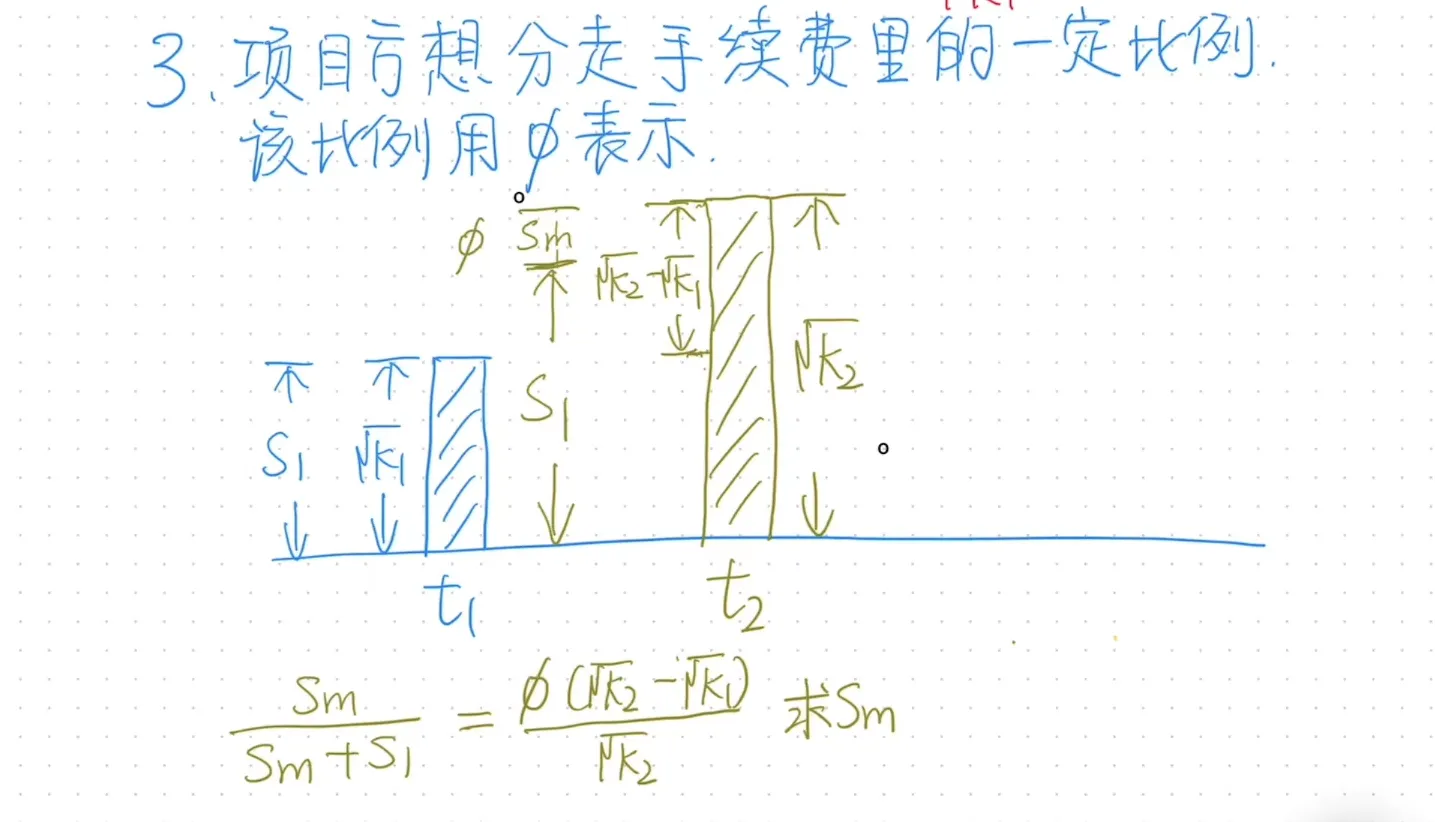 3、项目方想分走手续费里的一定比例.
该比例用φ表示.
φ Sm
√K2 - √K1
√K2
S1
S1 √K1
t1 t2
Sm / (Sm + S1) = φ(√K2 - √K1) / √K2 求Sm